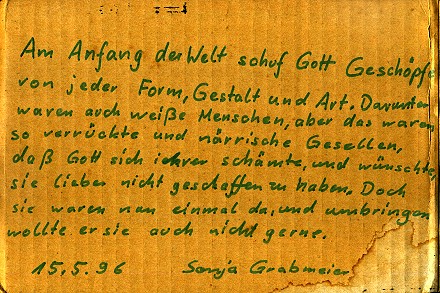 Am Anfang der Welt schuf Gott Geschöpfe
von jeder Form, Gestalt und Art. Darunter
waren auch weiße Menschen, aber das waren
so verrückte und närrische Gesellen,
daß Gott sich ihrer schämte, und wünschte,
sie lieber nicht geschaffen zu haben. Doch
sie waren nun einmal da, und umbringen
wollte er sie auch nicht gerne.
15.5.96 Sonja Grabmeier